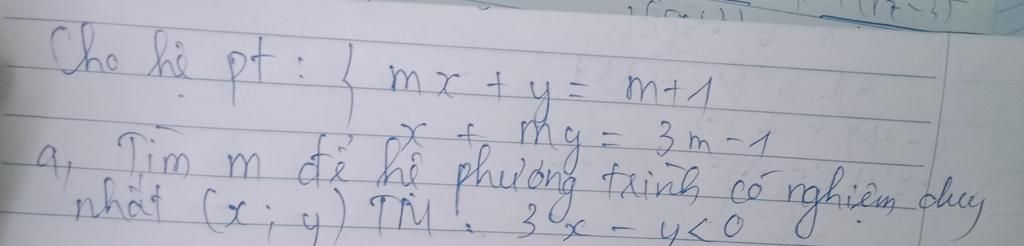 Cho hệ pt : { mx + y = m+1
x + my = 3m-1
a, Tìm m để hệ phương trình có nghiệm duy
nhất (x; y) TM : 3x - y < 0